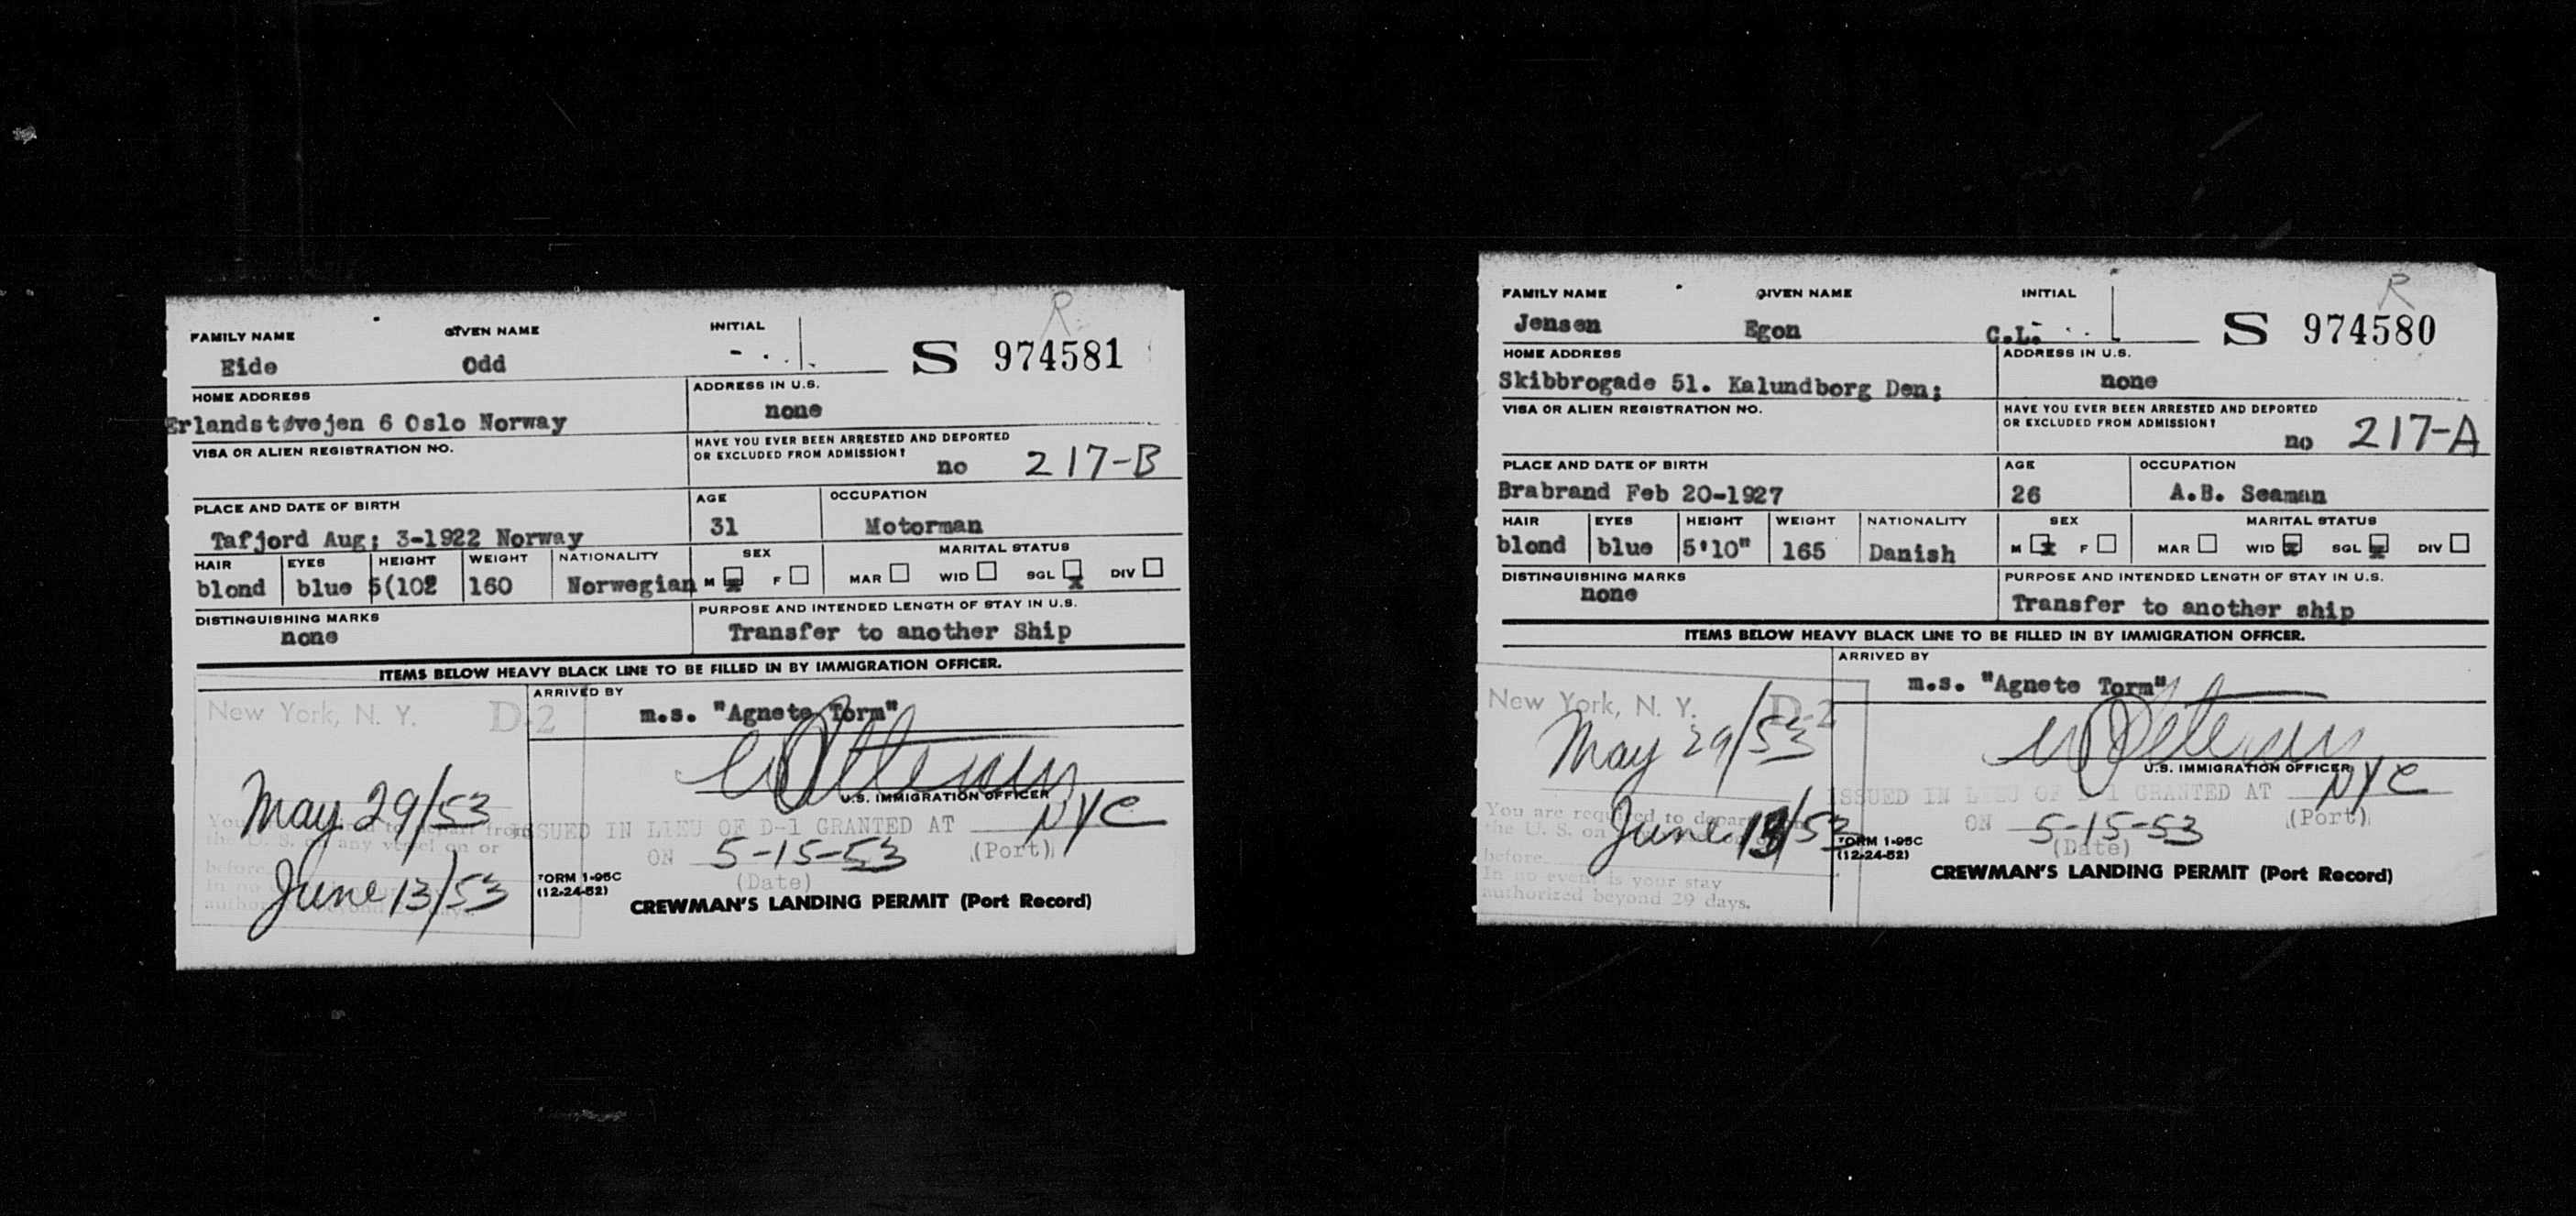 R
FAMILY NAME GIVEN NAME INITIAL
Eide Odd - S 974581
HOME ADDRESS ADDRESS IN U.S.
Erlandstøvejen 6 Oslo Norway none
VISA OR ALIEN REGISTRATION NO. HAVE YOU EVER BEEN ARRESTED AND DEPORTED
OR EXCLUDED FROM ADMISSION? no 217-B
PLACE AND DATE OF BIRTH AGE OCCUPATION
Tafjord Aug; 3-1922 Norway 31 Motorman
HAIR EYES HEIGHT WEIGHT NATIONALITY SEX MARITAL STATUS
blond blue 5(102 160 Norwegian M x F MAR WID SGL x DIV
DISTINGUISHING MARKS PURPOSE AND INTENDED LENGTH OF STAY IN U.S.
none Transfer to another Ship
ITEMS BELOW HEAVY BLACK LINE TO BE FILLED IN BY IMMIGRATION OFFICER.
New York, N. Y. D-2
ARRIVED BY
m.s. "Agnete Torm"
U.S. IMMIGRATION OFFICER
May 29/53
ISSUED IN LIEU OF D-1 GRANTED AT NYC
ON 5-15-53 (Port)
(Date)
before
June 13/53
FORM I-95C
(12-24-52)
CREWMAN'S LANDING PERMIT (Port Record)
R
FAMILY NAME GIVEN NAME INITIAL
Jensen Egon C.L. S 974580
HOME ADDRESS ADDRESS IN U.S.
Skibbrogade 51. Kalundborg Den; none
VISA OR ALIEN REGISTRATION NO. HAVE YOU EVER BEEN ARRESTED AND DEPORTED
OR EXCLUDED FROM ADMISSION? no 217-A
PLACE AND DATE OF BIRTH AGE OCCUPATION
Brabrand Feb 20-1927 26 A.B. Seaman
HAIR EYES HEIGHT WEIGHT NATIONALITY SEX MARITAL STATUS
blond blue 5'10" 165 Danish M x F MAR WID x SGL x DIV
DISTINGUISHING MARKS PURPOSE AND INTENDED LENGTH OF STAY IN U.S.
none Transfer to another ship
ITEMS BELOW HEAVY BLACK LINE TO BE FILLED IN BY IMMIGRATION OFFICER.
New York, N. Y. D-2
ARRIVED BY
m.s. "Agnete Torm"
U.S. IMMIGRATION OFFICER
May 29/53
ISSUED IN LIEU OF D-1 GRANTED AT NYC
ON 5-15-53 (Port)
(Date)
You are required to depart
the U. S. on
before
June 13/53
In no event is your stay
authorized beyond 29 days.
FORM I-95C
(12-24-52)
CREWMAN'S LANDING PERMIT (Port Record)